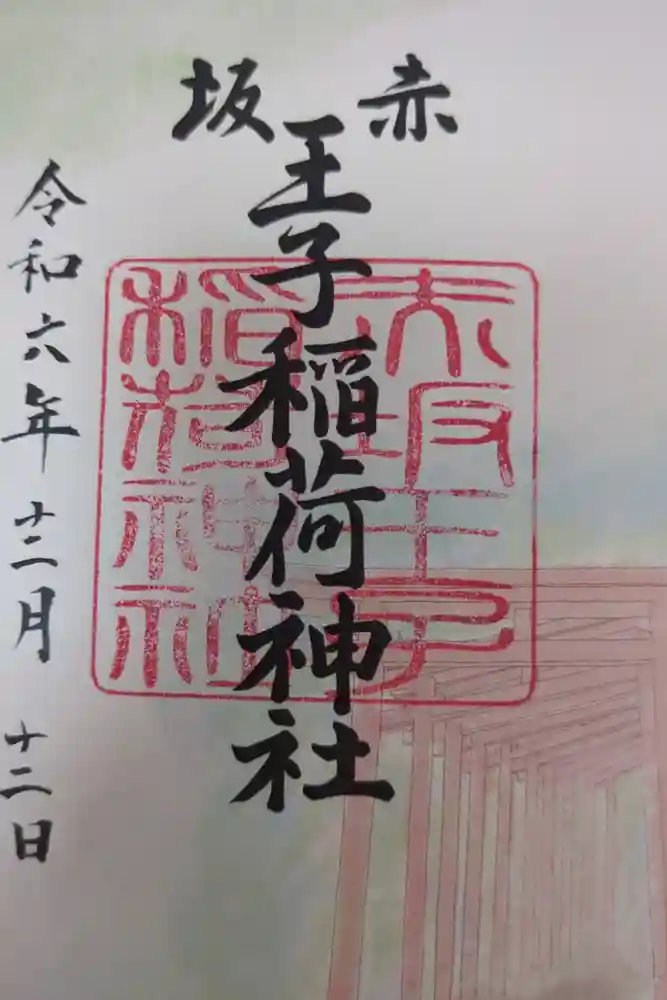 赤坂
王子稲荷神社
赤坂王子
稲荷神社
令和六年十二月十二日